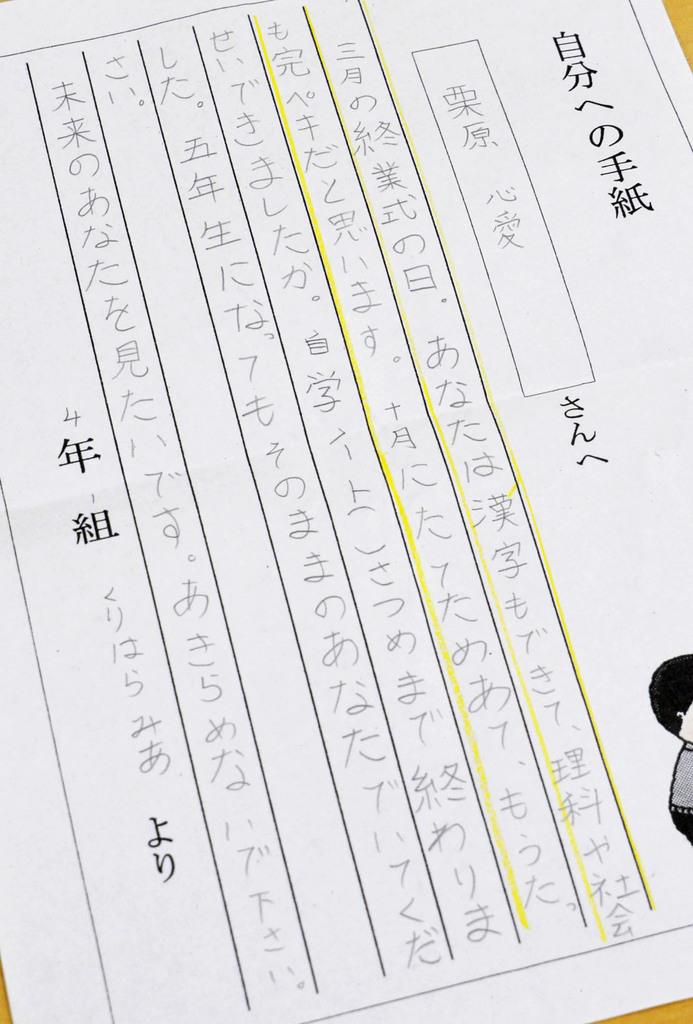 自分への手紙
栗原 心愛
さんへ
三月の終業式の日。あなたは漢字もできて、理科や社会
も完ペキだと思います。十月にたてためあて、もうたっ
せいできましたか。自学ノート(しさつめまで終わりま
した。五年生になってもそのままのあなたでいてくだ
さい。
未来のあなたを見たいです。あきらめないで下さい。
4年1組 くりはら みあ より